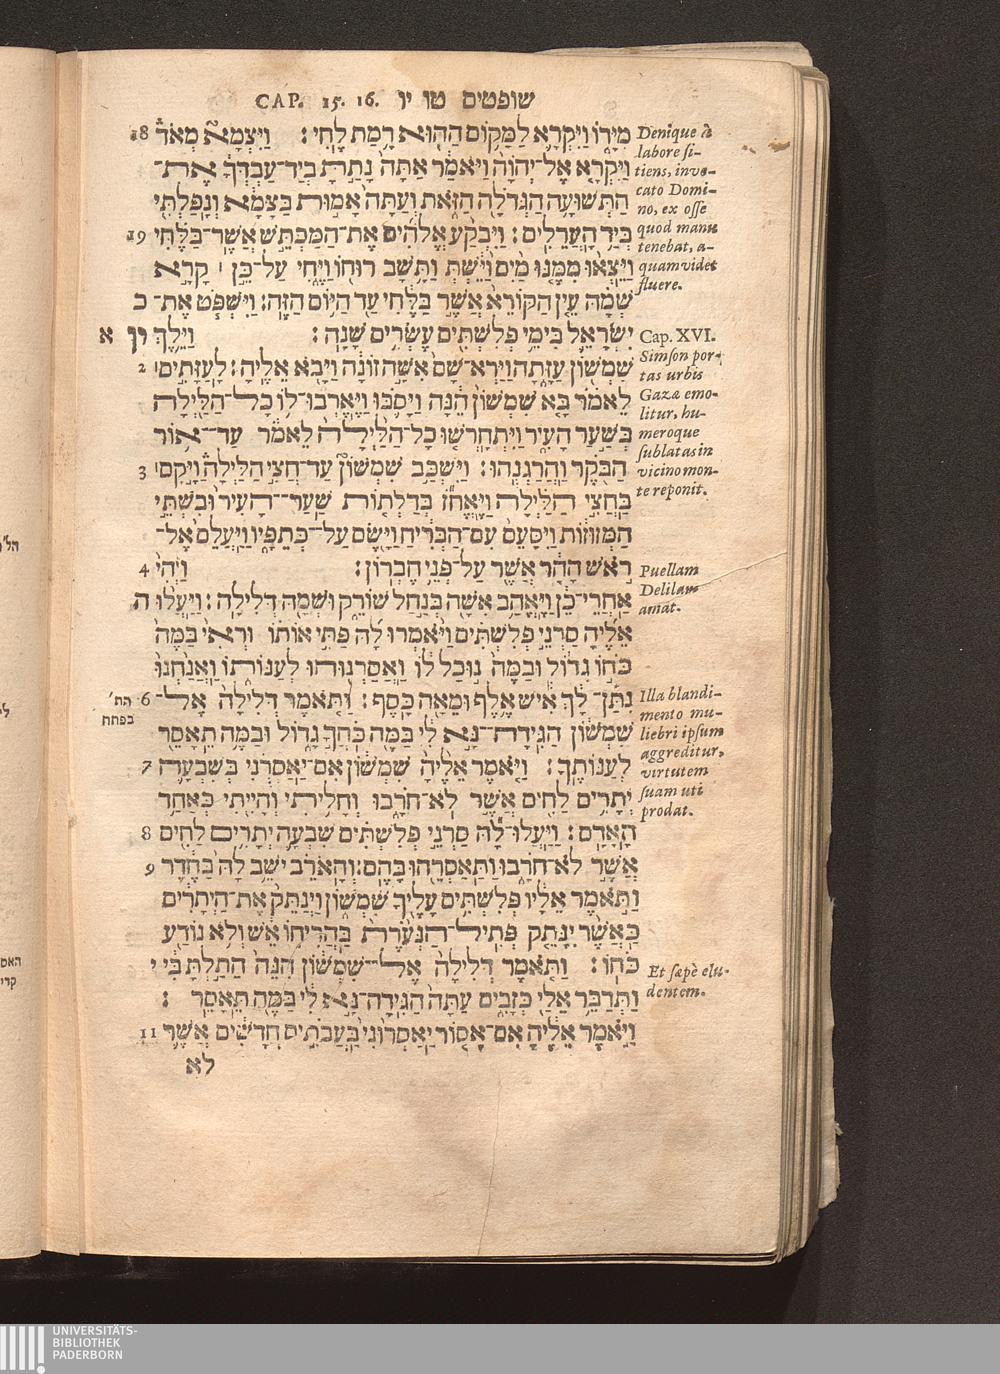 CAP. 15. 16. שופטים טו יו
מִיָּדוֹ וַיִּקְרָא לַמָּקוֹם הַהוּא רָמַת לֶחִי׃ וַיִּצְמָא מְאֹד 18
וַיִּקְרָא אֶל־יְהוָה וַיֹּאמַר אַתָּה נָתַתָּ בְיַד־עַבְדְּךָ אֶת־
הַתְּשׁוּעָה הַגְּדֹלָה הַזֹּאת וְעַתָּה אָמוּת בַּצָּמָא וְנָפַלְתִּי
בְּיַד הָעֲרֵלִים׃ וַיִּבְקַע אֱלֹהִים אֶת־הַמַּכְתֵּשׁ אֲשֶׁר־בַּלֶּחִי 19
וַיֵּצְאוּ מִמֶּנּוּ מַיִם וַיֵּשְׁתְּ וַתָּשָׁב רוּחוֹ וַיֶּחִי עַל־כֵּן ׀ קָרָא
שְׁמָהּ עֵין הַקּוֹרֵא אֲשֶׁר בַּלֶּחִי עַד הַיּוֹם הַזֶּה׃ וַיִּשְׁפֹּט אֶת־ כ
יִשְׂרָאֵל בִּימֵי פְלִשְׁתִּים עֶשְׂרִים שָׁנָה׃ וַיֵּלֶךְ יו א
שִׁמְשׁוֹן עַזָּתָה וַיַּרְא־שָׁם אִשָּׁה זוֹנָה וַיָּבֹא אֵלֶיהָ׃ לַעַזָּתִים׀ 2
לֵאמֹר בָּא שִׁמְשׁוֹן הֵנָּה וַיָּסֹבּוּ וַיֶּאֶרְבוּ־לוֹ כָל־הַלַּיְלָה
בְּשַׁעַר הָעִיר וַיִּתְחָרְשׁוּ כָל־הַלַּיְלָה לֵאמֹר עַד־אוֹר
הַבֹּקֶר וַהֲרַגְנֻהוּ׃ וַיִּשְׁכַּב שִׁמְשׁוֹן עַד־חֲצִי הַלַּיְלָה וַיָּקָם׀ 3
בַּחֲצִי הַלַּיְלָה וַיֶּאֱחֹז בְּדַלְתוֹת שַׁעַר־הָעִיר וּבִשְׁתֵּי
הַמְּזוּזוֹת וַיִּסָּעֵם עִם־הַבְּרִיחַ וַיָּשֶׂם עַל־כְּתֵפָיו וַיַּעֲלֵם אֶל־
רֹאשׁ הָהָר אֲשֶׁר עַל־פְּנֵי חֶבְרוֹן׃ וַיְהִי 4
אַחֲרֵי־כֵן וַיֶּאֱהַב אִשָּׁה בְּנַחַל שׂוֹרֵק וּשְׁמָהּ דְּלִילָה׃ וַיַּעֲלוּ ה
אֵלֶיהָ סַרְנֵי פְלִשְׁתִּים וַיֹּאמְרוּ לָהּ פַּתִּי אוֹתוֹ וּרְאִי בַּמֶּה
כֹּחוֹ גָדוֹל וּבַמֶּה נוּכַל לוֹ וַאֲסַרְנוּהוּ לְעַנּוֹתוֹ וַאֲנַחְנוּ
נִתַּן־לָךְ אִישׁ אֶלֶף וּמֵאָה כָּסֶף׃ וַתֹּאמֶר דְּלִילָה אֶל־ 6
שִׁמְשׁוֹן הַגִּידָה־נָּא לִי בַּמֶּה כֹּחֲךָ גָדוֹל וּבַמֶּה תֵאָסֵר
לְעַנּוֹתֶךָ׃ וַיֹּאמֶר אֵלֶיהָ שִׁמְשׁוֹן אִם־יַאַסְרֻנִי בְּשִׁבְעָה 7
יְתָרִים לַחִים אֲשֶׁר לֹא־חֹרָבוּ וְחָלִיתִי וְהָיִיתִי כְּאַחַד
הָאָדָם׃ וַיַּעֲלוּ־לָהּ סַרְנֵי פְלִשְׁתִּים שִׁבְעָה יְתָרִים לַחִים 8
אֲשֶׁר לֹא־חֹרָבוּ וַתַּאַסְרֵהוּ בָּהֶם׃ וְהָאֹרֵב יֹשֵׁב לָהּ בַּחֶדֶר 9
וַתֹּאמֶר אֵלָיו פְּלִשְׁתִּים עָלֶיךָ שִׁמְשׁוֹן וַיְנַתֵּק אֶת־הַיְתָרִים
כַּאֲשֶׁר יִנָּתֵק פְּתִיל־הַנְּעֹרֶת בַּהֲרִיחוֹ אֵשׁ וְלֹא נוֹדַע
כֹּחוֹ׃ וַתֹּאמֶר דְּלִילָה אֶל־שִׁמְשׁוֹן הִנֵּה הֵתַלְתָּ בִּי י
וַתְּדַבֵּר אֵלַי כְּזָבִים עַתָּה הַגִּידָה־נָּא לִי בַּמֶּה תֵּאָסֵר׃
וַיֹּאמֶר אֵלֶיהָ אִם־אָסוֹר יַאַסְרוּנִי בַּעֲבֹתִים חֲדָשִׁים אֲשֶׁר 11
לֹא
Denique à
labore si-
tiens, invo-
cato Domi-
no, ex osse
quod manu
tenebat, a-
quam videt
fluere.
Cap. XVI.
Simson por-
tas urbis
Gazæ emo-
litur, hu-
meroque
sublatas in
vicino mon-
te reponit.
Puellam
Delilam
amat.
Illa blandi-
mento mu-
liebri ipsum
aggreditur,
virtutem
suam uti
prodat.
Et sæpè elu-
dentem.
הת׳
בפתח
UNIVERSITÄTS-
BIBLIOTHEK
PADERBORN